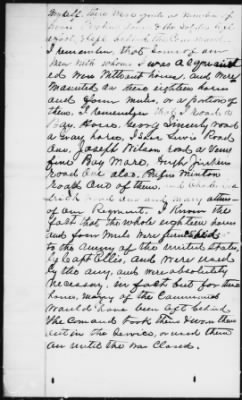 myself. There were quite a number of
I remember, that some of our
men with whom I was acquaint
ed were without horses, and were
mounted on these eighteen horses
and four mules, or a portion of
them. I remember that I road a
Bay Horse. George Smiley road
a Gray horse, Isaac Lewis Road
One. Joseph Nelson road a very
fine Bay Mare. Hugh Jenkins
road One also. Rufus Minton
road One of them.
road one and many others
of our Regiment. I know the
fact that the whole eighteen horses
and four mules were furnished
to the army of the united states,
by Capt Ellis, and were used
by the army, and were absolutely
necessary. in fact but for these
horses, many of the Command
would have been left behind
the Comand took them & wore them
out in the Service, or used them
on until the War Closed.